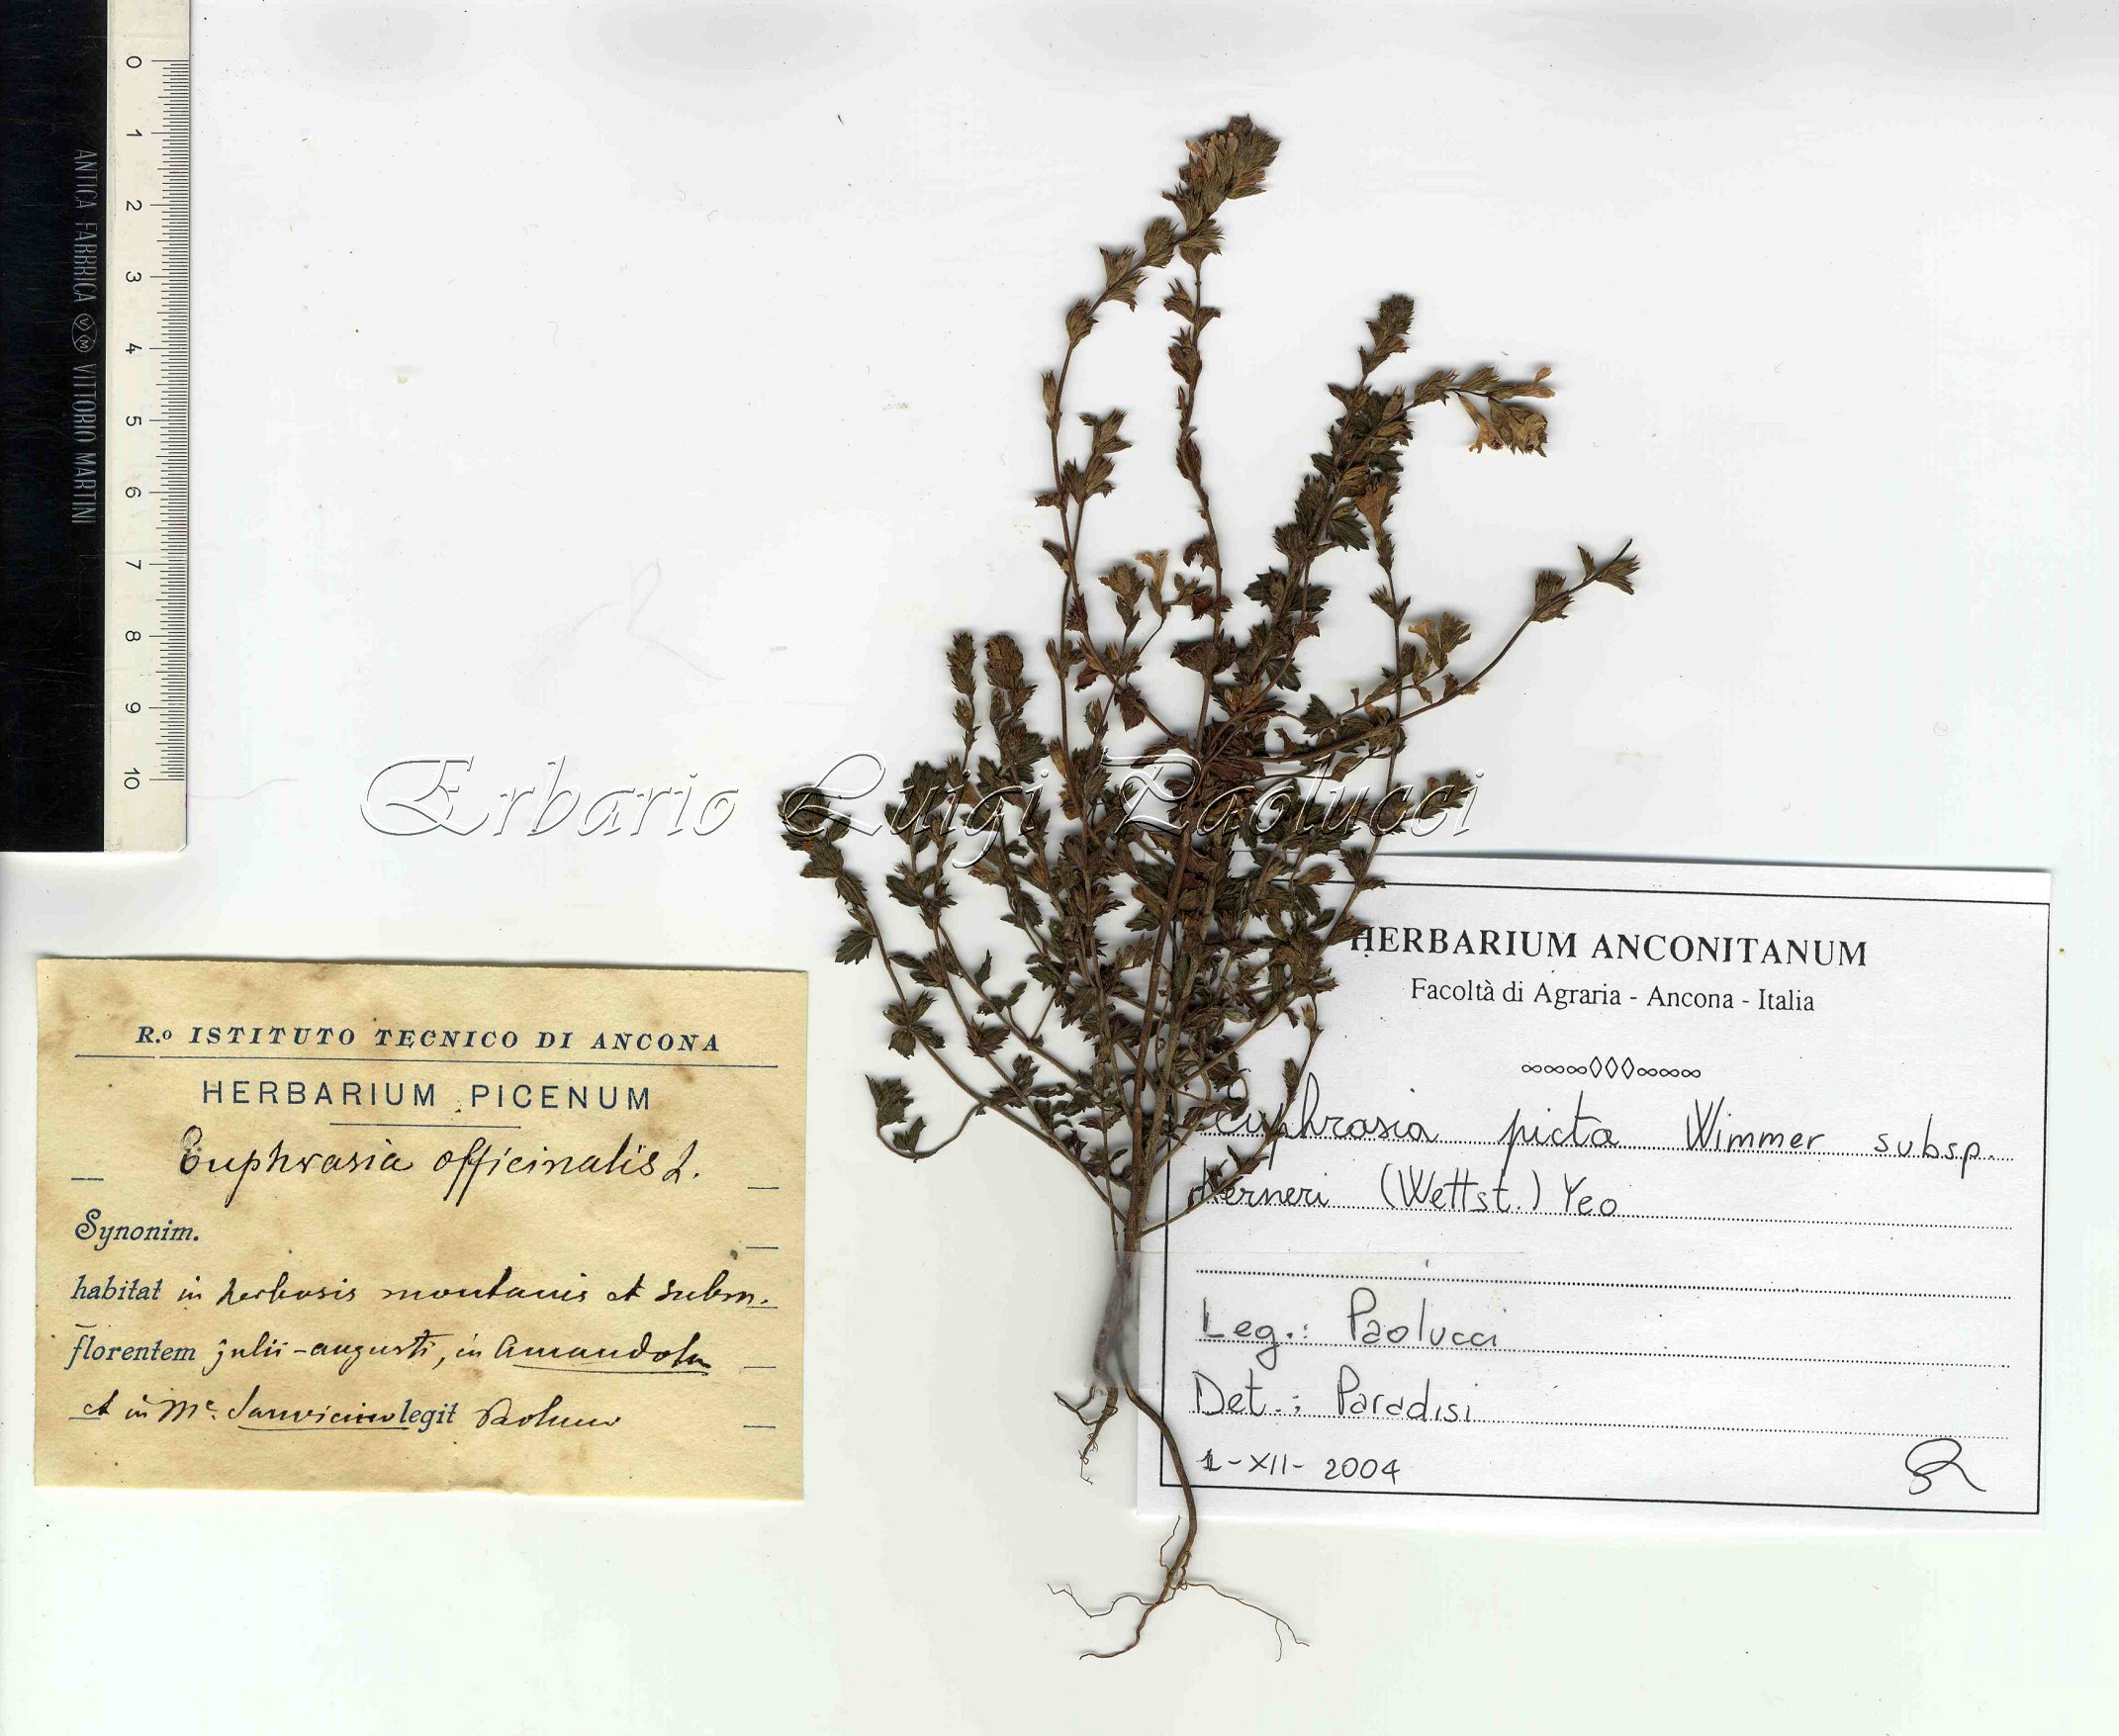 0
1
2
3
4
5
6
7
8
9
10
ANTICA FABBRICA VM VITTORIO MARTINI
Erbario Luigi Paolucci
R.o ISTITUTO TECNICO DI ANCONA
HERBARIUM PICENUM
Euphrasia officinalis L.
Synonim.
habitat in herbosis montanis et subm.
florentem julii-augusti, in Amandola
et in Me. Sanvicino legit Paolucci
HERBARIUM ANCONITANUM
Facoltà di Agraria - Ancona - Italia
Euphrasia picta Wimmer subsp.
Kerneri (Wettst.) Yeo
Leg.: Paolucci
Det.: Paradisi
1-XII-2004